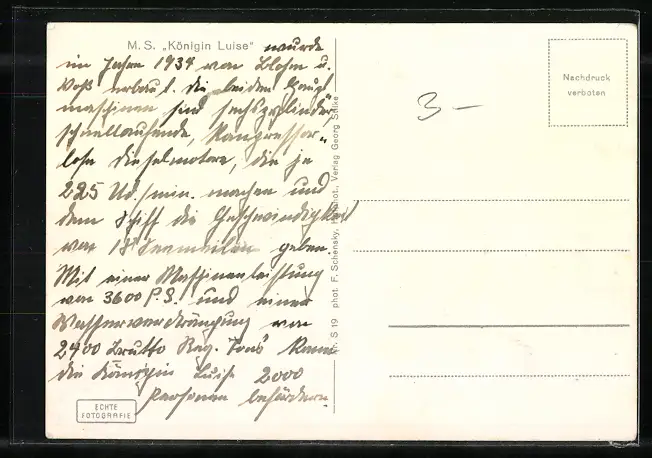 M. S. „Königin Luise" wurde
im Jahre 1934 von Blohm u.
Voß erbaut. die beiden Haupt
maschinen sind sechszylinder,
schnellaufende, kompressor-
lose Dieselmotore, die je
225 Ud./min. machen und
dem Schiff die Geschwindigkeit
von 18 Seemeilen geben.
Mit einer Maschinenleistung
von 3600 P.S. und einer
Wasserverdrängung von
2400 Brutto Reg. Tons kann
die Königin Luise 2000
Personen befördern
ECHTE
FOTOGRAFIE
S 19 phot. F. Schensky, Verlag Georg
3 –
Nachdruck
verboten